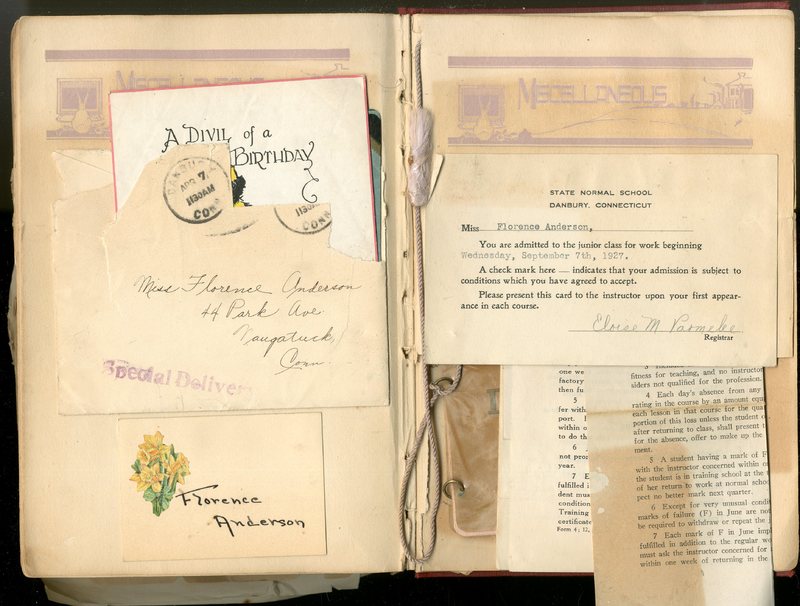 MISCELLANEOUS
A DIVIL of a
BIRTHDAY
DANBURY
APR 7
1130AM
CONN.
1130
CONN
Miss Florence Anderson
44 Park Ave.
Naugatuck,
Conn.
Special Delivery
Florence
Anderson
MISCELLANEOUS
STATE NORMAL SCHOOL
DANBURY, CONNECTICUT
Miss Florence Anderson,
You are admitted to the junior class for work beginning
Wednesday, September 7th, 1927.
A check mark here — indicates that your admission is subject to
conditions which you have agreed to accept.
Please present this card to the instructor upon your first appear-
ance in each course.
Eloise M Parmelee
Registrar
one we
factory
then fu
5
fer with
port. I
within o
to do th
6
not pro
year.
7 E
fulfilled i
dent mus
condition
Training
certificate
Form 4; 12,
fitness for teaching, and no instructor
siders not qualified for the profession.
4 Each day's absence from any
rating in the course by an amount equ
each lesson in that course for the qua
portion of this loss unless the student o
after returning to class, shall present t
for the absence, offer to make up the
ment.
5 A student having a mark of F
with the instructor concerned within o
the student is in training school at the
of her return to work at normal schoo
pect no better mark next quarter.
6 Except for very unusual condit
marks of failure (F) in June are not
be required to withdraw or repeat the
7 Each mark of F in June imp
fulfilled in addition to the regular wo
must ask the instructor concerned for
within one week of returning in the